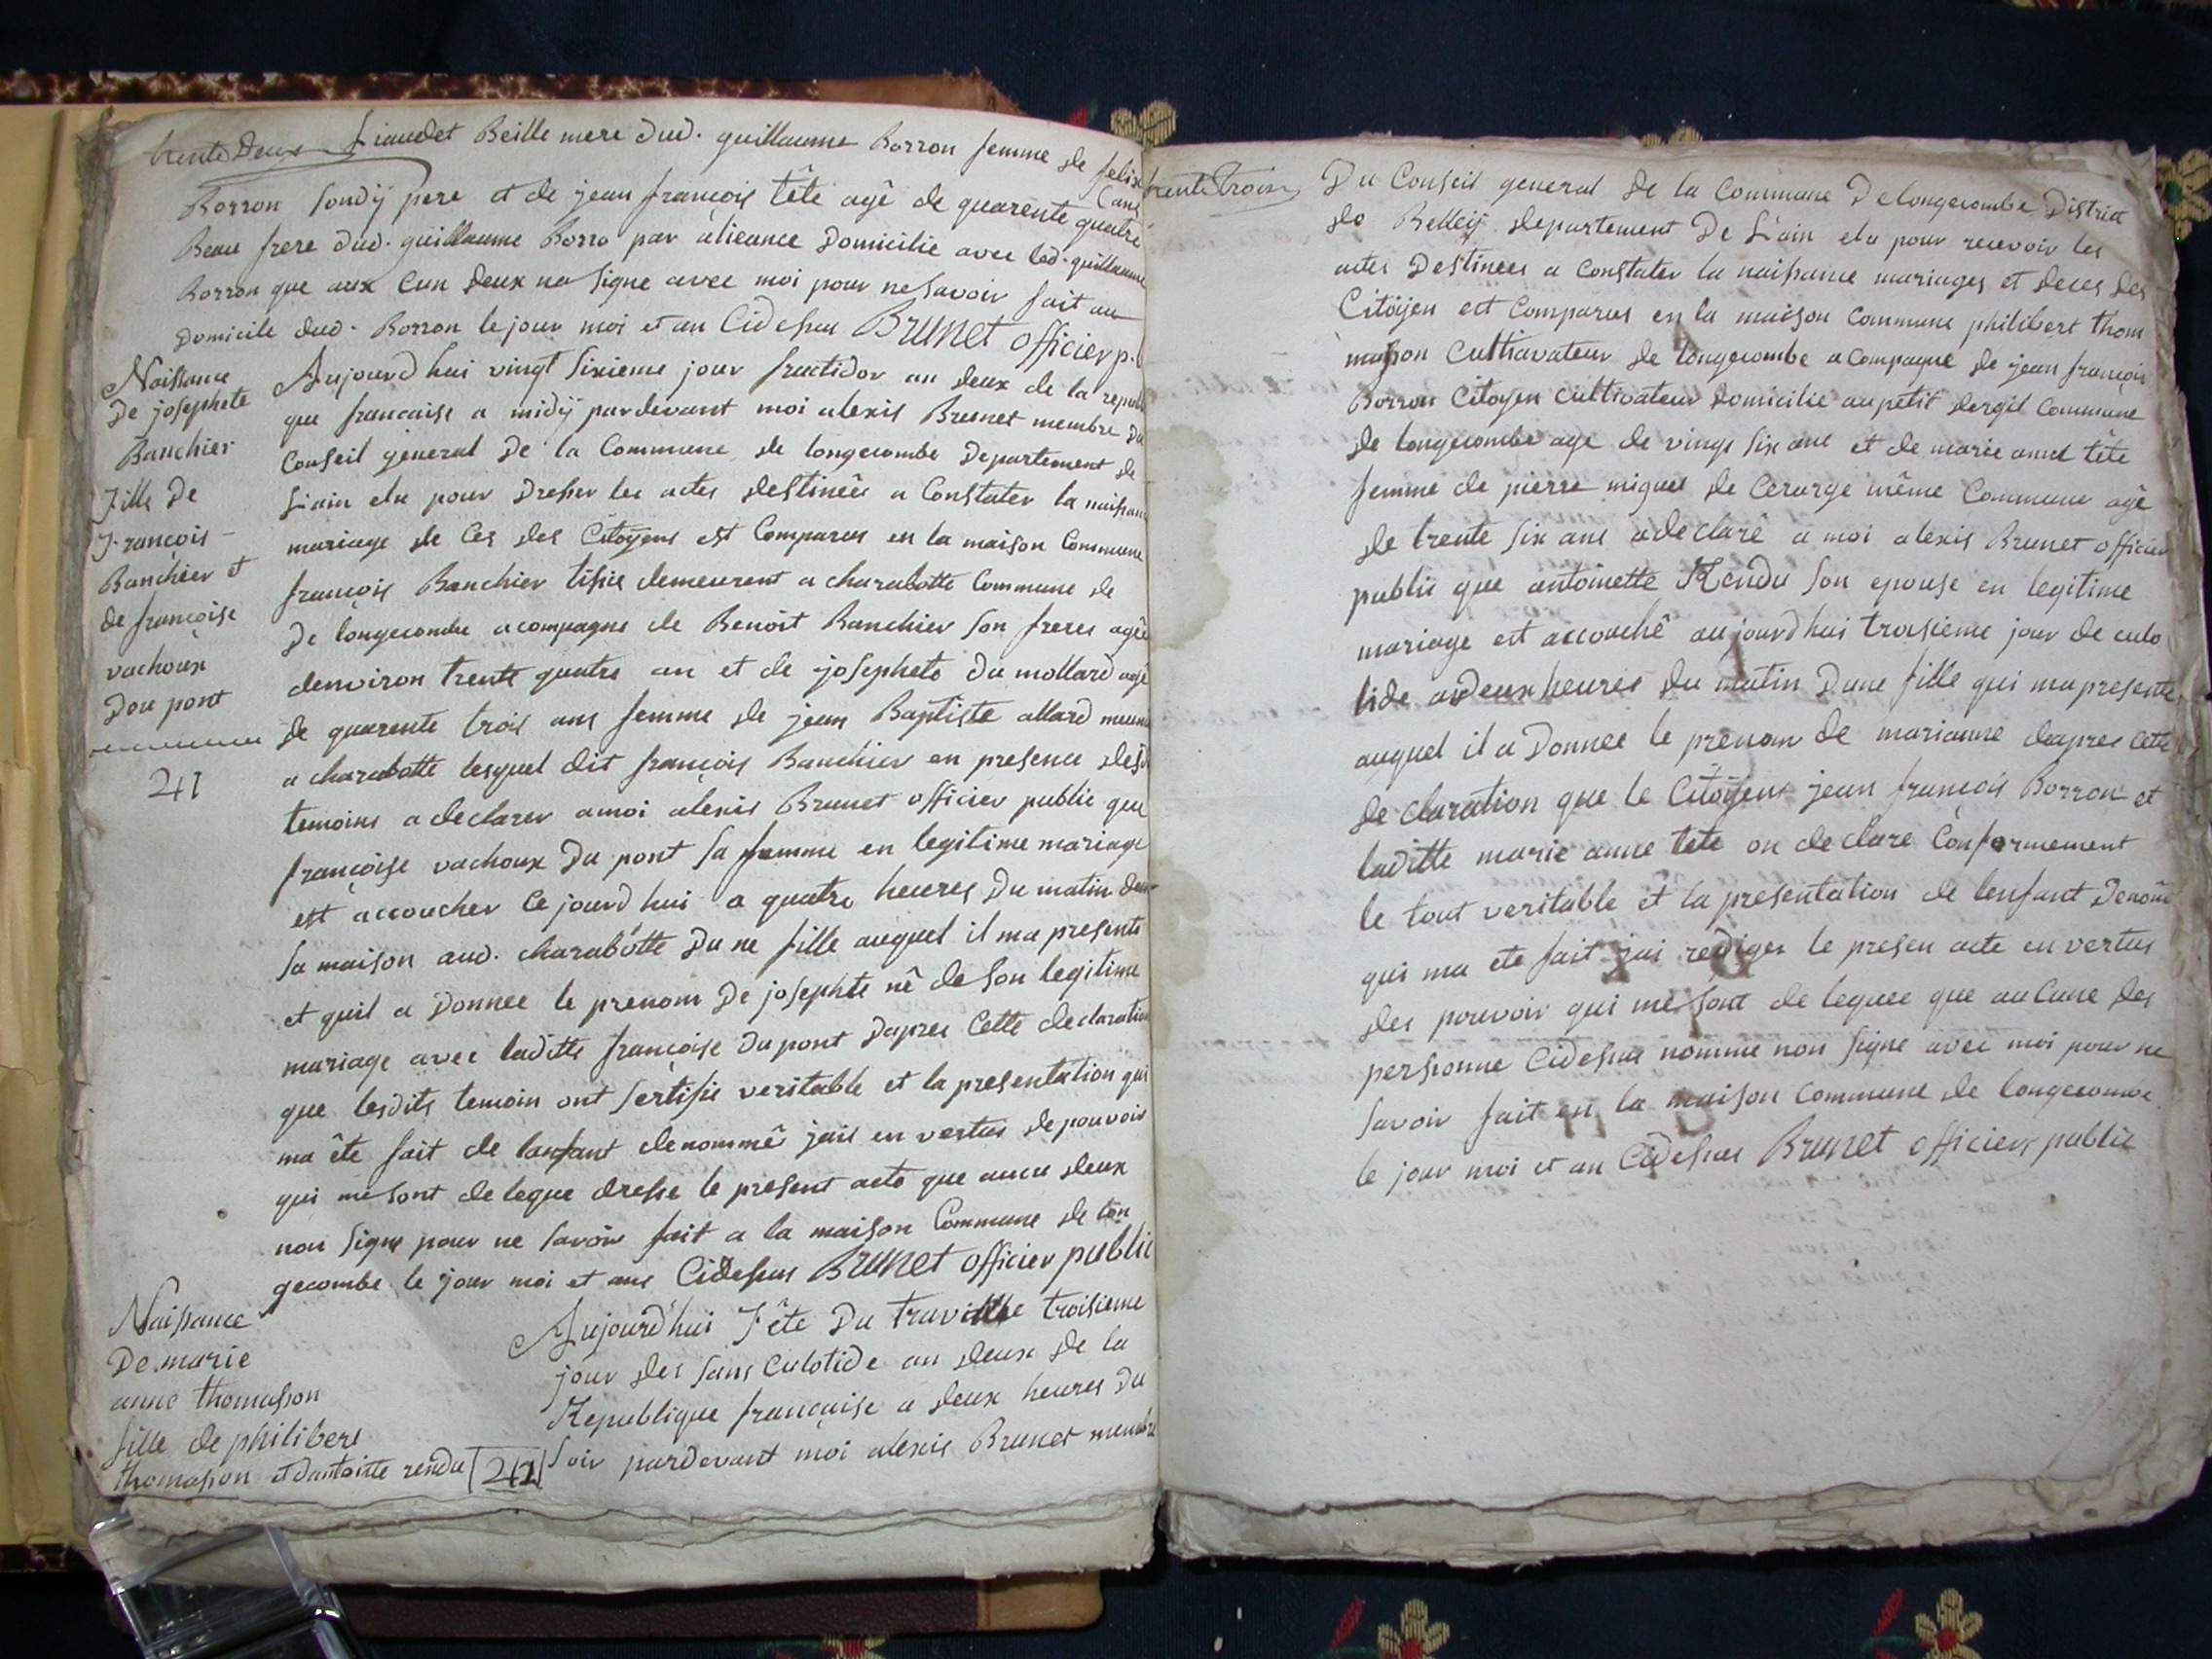 trente Deux Liaudet Beille mere dud. guillaume Borron femme de felix
Borron Sondÿ pere et de jean françois tête agê de quarente quatre ans
Beau frere dud. guillaume Borro par alieance Domicilie avec led. guillaume
Borron que aux cun deux na Signe avec moi pour ne Savoir fait au
Domicile dud. Borron le jour moi et an Cidessus Brunet officier p.
Naissance
De josephete
Banchier
Fille De
François -
Banchier et
de françoise
vachoux
Dou pont
241
Aujourd hui vingt Sixieme jour fructidor an deux de la republi
que francaise a midÿ pardevant moi alexis Brunet membre Du
Conseil general De la Commune de longecombe Departement de
L'ain elu pour Dresser les actes destineês a Constater la naissance
mariage de Ces des Citoÿens est Comparus en la maison Commune
françois Banchier tisie demeurent a charabotte Commune de
De longecombe acompagne de Benoit Banchier son freres agê
denviron trente quatre an et de josephete du mollard agê
de quarente trois ans femme de jean Baptiste allard
a charabotte lesquel dit françois Banchier en presence desd
temoins a declarer a moi alexis Brunet officier public que
françoise vachoux Du pont Sa femme en legitime mariage
est accoucher Ce jourd hui a quatre heures Du matin dans
Sa maison aud. charabotte Du ne fille auquel il ma presente
et quil a Donnee le prenom De josephte nê de Son legitime
mariage avec laditte françoise Du pont Dapres Cette declaration
que lesdits temoin ont Sertifie veritable et la presentation qui
ma ête fait de lanfant denommê jais en vertus de pouvoir
qui me sont delegue dresse le present acte que aucu deux
non Signe pour ne Savoir fait a la maison Commune de lon
gecombe le jour moi et ans Cidessus Brunet officier public
Naissance
De marie
anne thomasson
fille de philibert
thomasson et dantoinette rendu 242
Aujourd'hui Fête Du travaille troisieme
jour des Sans Culotide an deux de la
Republique francaise a deux heures Du
Soir pardevant moi alexis Brunet membre
trente trois Du Conseil general de la Commune De longecombe District
de Belleÿ departement De L'ain elu pour recevoir les
actes Destinees a Constater la naissance mariages et deces des
Citöÿen est Comparus en la maison Commune philibert thom
masson Cultiavateur de longecombe acompagne de jean françois
Borron Citoyen Cultivateur domicilie au petit dergit Commune
de longecombe age de vingt Six ans et de marie anne tête
femme de pierre miguet de Cerarge même Commune agê
de trente Six ans a declarê a moi alexis Brunet officier
public que antoinette Rendu Son epouse en legitime
mariage est accouchê aujourd hui troisieme jour de culo
tide a deux heures Du matin Dune fille qui ma presente
auquel il a Donnee le prenom de marianne dapres cette
declaration que le Citöÿens jean françois Borron et
laditte marie anne tete on declare Conformement
le tout veritable et la presentation de lenfant Denom
qui ma ete fait jai rediger le presen acte en vertus
des pouvoir qui me sont deleguee que aucune des
personne Cidessus nomme non signe avec moi pour ne
Savoir fait en la maison Commune de longecombe
le jour moi et an Cidessus Brunet officier public